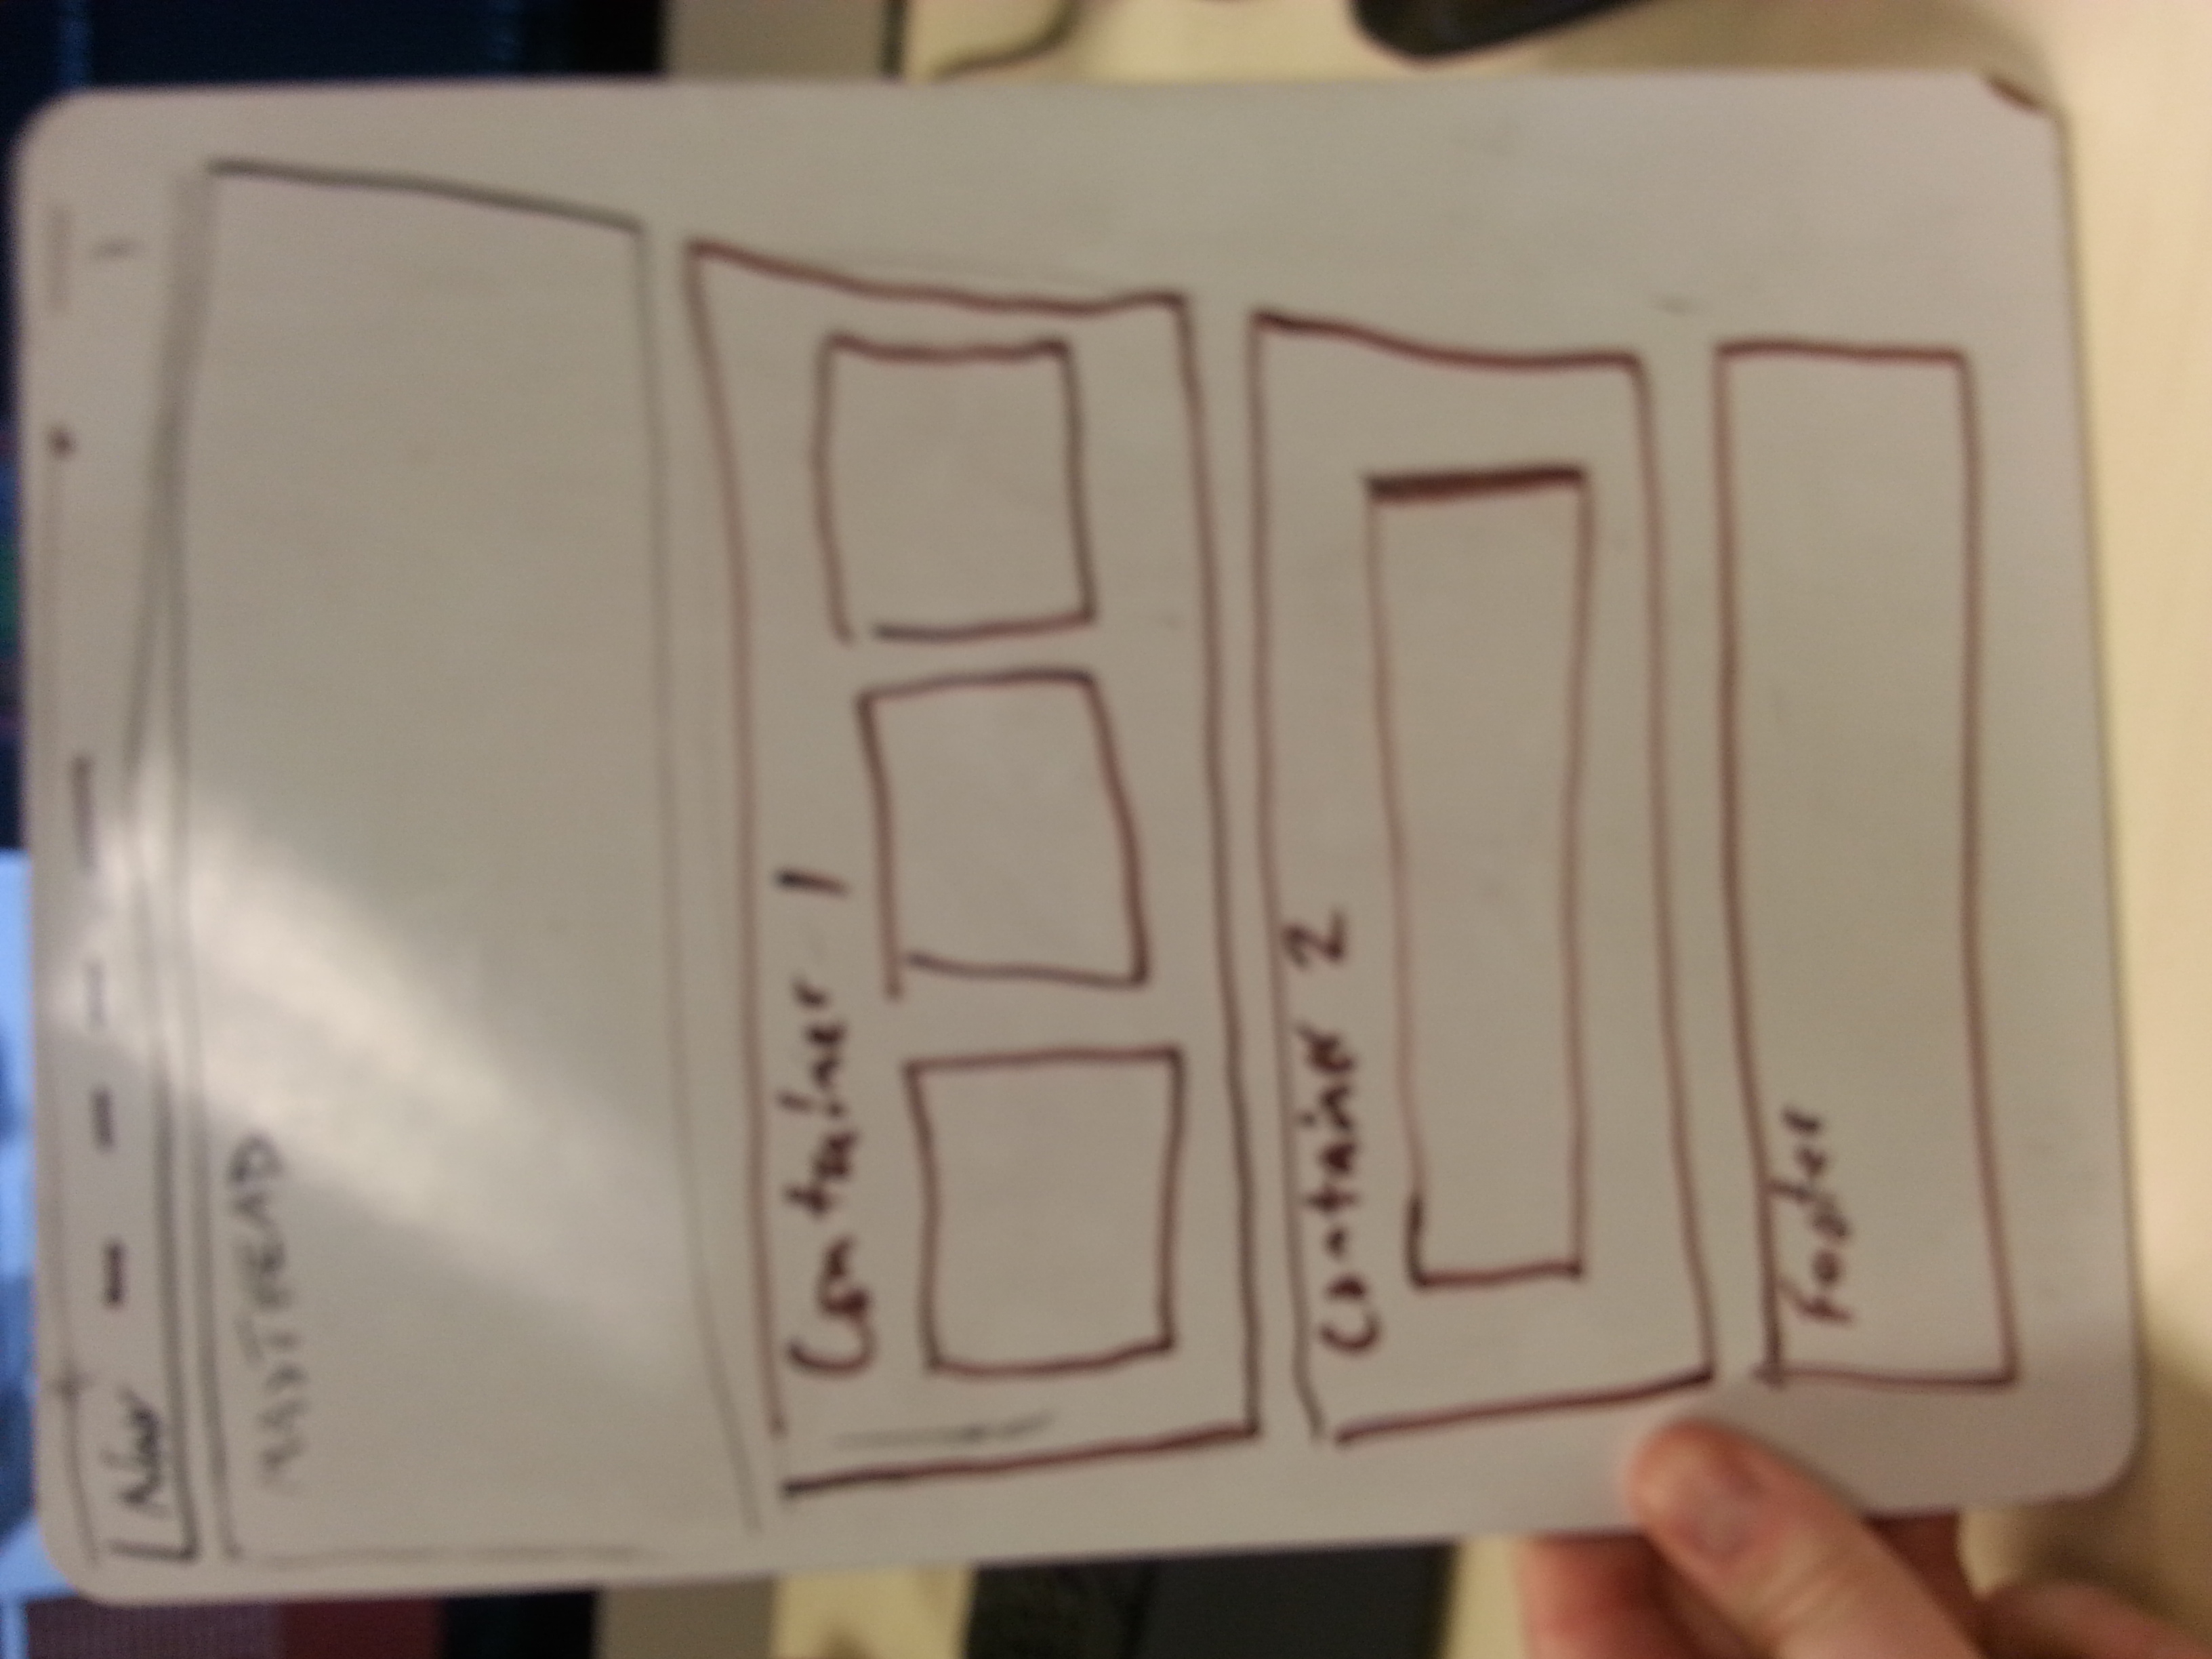 Nav
MASTHEAD
Container 1
Container 2
Footer